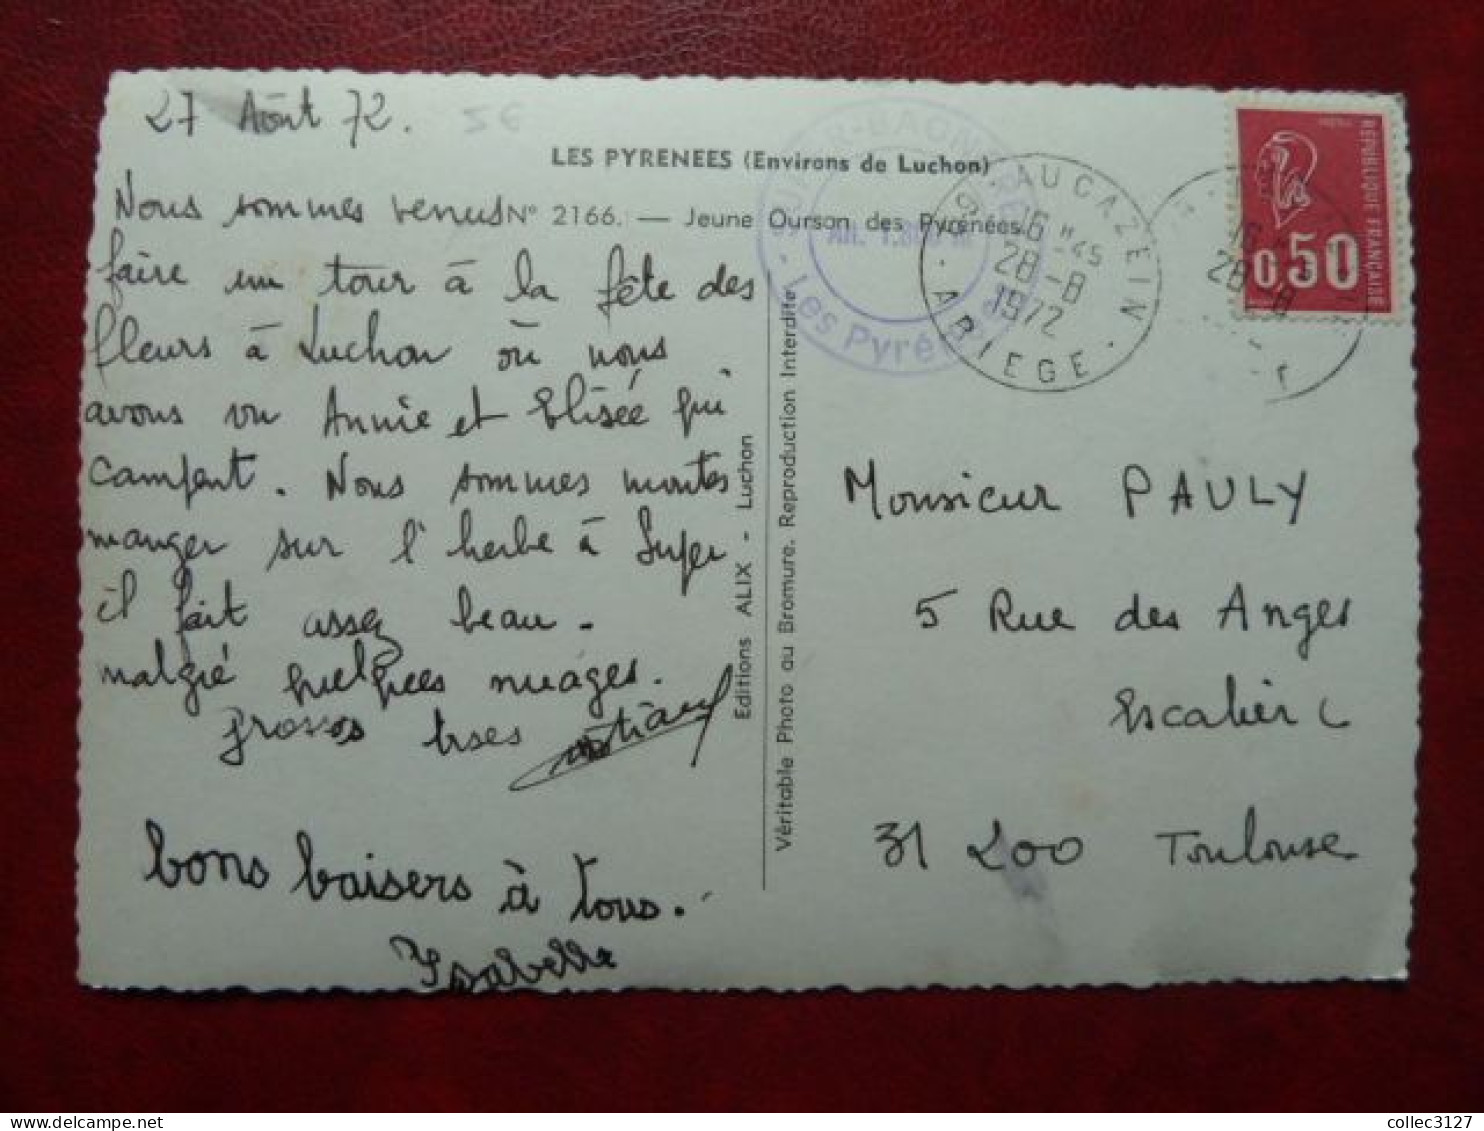 27 Août 72.
5€
LES PYRENEES (Environs de Luchon)
N° 2166. — Jeune Ourson des Pyrénées.
Nous sommes venus
faire un tour à la fête des
fleurs à Luchon où nous
avons vu Annie et Elisée qui
campent. Nous sommes montés
manger sur l'herbe à Super
il fait assez beau.
malgré quelques nuages.
Grosses bises
bons baisers à tous.
Isabelle
Editions ALIX - Luchon
Véritable Photo au Bromure. Reproduction Interdite
Les Pyrénées
AUCAZEIN
16 H45
28-8
1972
ARIEGE
REPUBLIQUE FRANCAISE
0,50
Monsieur PAULY
5 Rue des Anges
Escalier C
31 200 Toulouse
collec3127